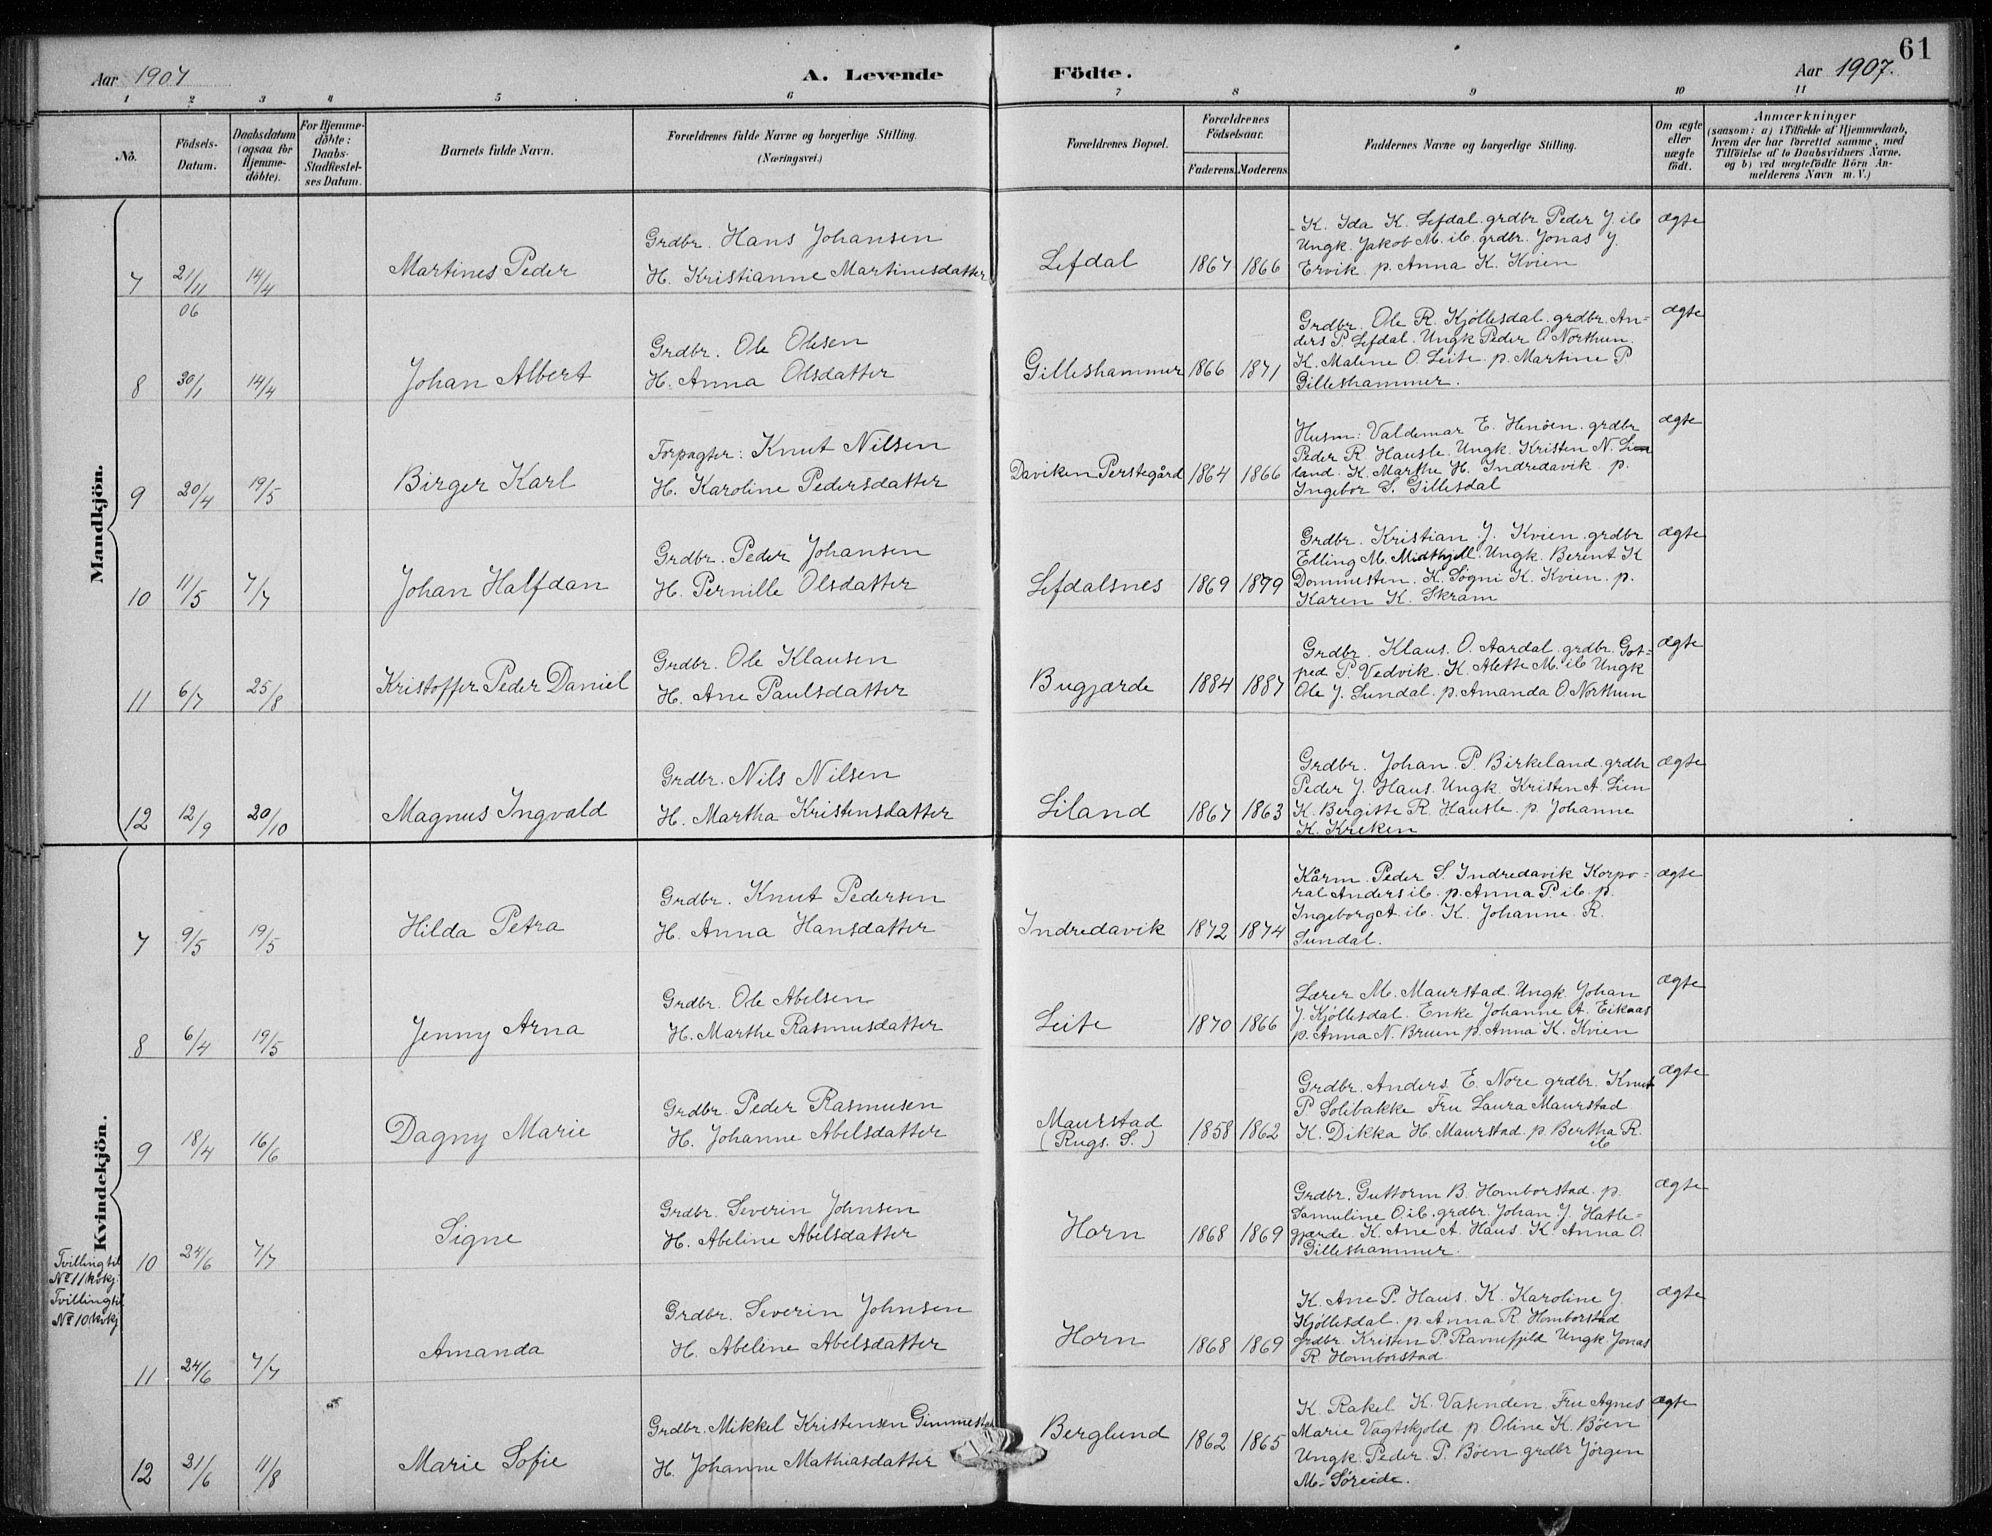 Aar 1907
A. Levende Födte.
Aar 1907.
61
1 2 3 4 5 6 7 8 9 10 11
No.
Födsels-
Datum.
Daabsdatum
(ogsaa for
Hjemme-
döbte).
For Hjemme-
döbte:
Daabs-
Stadfæstel-
ses Datum.
Barnets fulde Navn.
Forældrenes fulde Navne og borgerlige Stilling.
(Næringsvei.)
Forældrenes Bopæl.
Forældrenes
Födselsaar.
Faderens. Moderens.
Faddernes Navne og borgerlige Stilling.
Om ægte
eller
uægte
födt.
Anmærkninger
(saasom: a) i Tilfælde af Hjemmedaab,
hvem der har forrettet samme, med
Tilföielse af to Daabsvidners Navne,
og b) ved uægtefödte Börn An-
melderens Navn m. V.)
Mandkjön.
7 21/11 06 14/4 Martines Peder
Grdbr. Hans Johansen
H. Kristianne Martinesdatter
Lefdal 1867 1866
K. Ida K. Lefdal. grdbr Peder J. ib
Ungk. Jakob M. ib. grdbr. Jonas J.
Ervik. p. Anna K. Kvien
ægte
8 30/1 14/4 Johan Albert
Grdbr. Ole Olesen
H. Anna Olsdatter
Gilleshammer 1866 1871
Grdbr. Ole R. Kjöllesdal. grdbr. An-
ders P. Lefdal. Ungk Peder O. Northun.
K. Malene O. Leite. p. Martine P
Gilleshammer.
ægte
9 20/4 19/5 Birger Karl
Forpagter: Knut Nilsen
H. Karoline Pedersdatter
Daviken Perstegård 1864 1866
Husm: Valdemar E. Henöen. grdbr
Peder R. Hausle. Ungk. Kristen N. Li
land. K. Marthe H. Indredavik. p.
Ingebor S. Gillesdal
ægte
10 11/5 7/7 Johan Halfdan
Grdbr. Peder Johansen
H. Pernille Olsdatter
Lefdalsnes 1869 1899
Grdbr. Kristian J. Kvien. grdbr
Elling M. Midthjell. Ungk. Berent K
Dommesten. K. Sögni K. Kvien. p.
Karen K. Skram
ægte
11 6/7 25/8 Kristoffer Peder Daniel
Grdbr. Ole Klausen
H. Ane Paulsdatter
Bugjærde 1884 1887
Grdbr. Klaus. O. Aardal. grdbr. Got-
fred P. Vedvik. K. Alette M. ib Ungk
Ole J. Sundal. p. Amanda O. Northun
ægte
12 12/9 20/10 Magnus Ingvald
Grdbr. Nils Nilsen
H. Martha Kristensdatter
Liland 1867 1863
Grdbr. Johan P. Birkeland. grdbr
Peder J. Haus. Ungk. Kristen A. Lien
K. Bergitte R. Hausle. p. Johanne
K. Kreken
ægte
Kvindekjön.
7 9/5 19/5 Hilda Petra
Grdbr. Knut Pedersen
H. Anna Hansdatter
Indredavik 1872 1874
Kårm. Peder S. Indredavik Korpo-
ral Anders ib. p. Anna P. ib. p.
Ingeborg A. ib. K. Johanne R.
Sundal.
ægte
8 6/4 19/5 Jenny Arna
Grdbr. Ole Abelsen
H. Marthe Rasmusdatter
Leite 1870 1866
Lærer M. Maurstad. Ungk. Johan
J. Kjöllesdal. Enke Johanne A. Eikaas
p. Anna N. Bruun p. Anna K. Kvien
ægte
9 18/4 16/6 Dagny Marie
Grdbr. Peder Rasmusen
H. Johanne Abelsdatter
Maurstad
(Rugs. S.) 1858 1862
Grdbr. Anders. E. Nore grdbr. Knut
P. Solibakke Fru Laura Maurstad
K. Dikka H. Maurstad. p Bertha R.
ib
ægte
Tvilling til
No 11 kvkj
10 24/6 7/7 Signe
Grdbr. Severin Johnsen
H. Abeline Abelsdatter
Horn 1868 1869
Grdbr. Guttorm B. Homborstad. p.
Samuline O. ib. grdbr. Johan J. Hatle-
gjærde. K. Ane A. Haus. K. Anna O.
Gilleshammer.
ægte
Tvilling til
No 10 kvkj
11 24/6 7/7 Amanda
Grdbr. Severin Johnsen
H. Abeline Abelsdatter
Horn 1868 1869
K. Ane P. Haus. K. Karoline J.
Kjöllesdal. p. Anna R Homborstad
grdbr. Kristen P. Ravnefjeld Ungk. Jonas
R. Homborstad
ægte
12 21/6 11/8 Marie Sofie
Grdbr. Mikkel Kristensen Gimmestad
H. Johanne Mathiasdatter
Berglund 1862 1865
K. Rakel K. Vasenden. Fru Agnes
Marie Vagtskjold p Oline K. Böen
Ungk. Peder P. Böen grdbr Jörgen
M. Söreide.
ægte